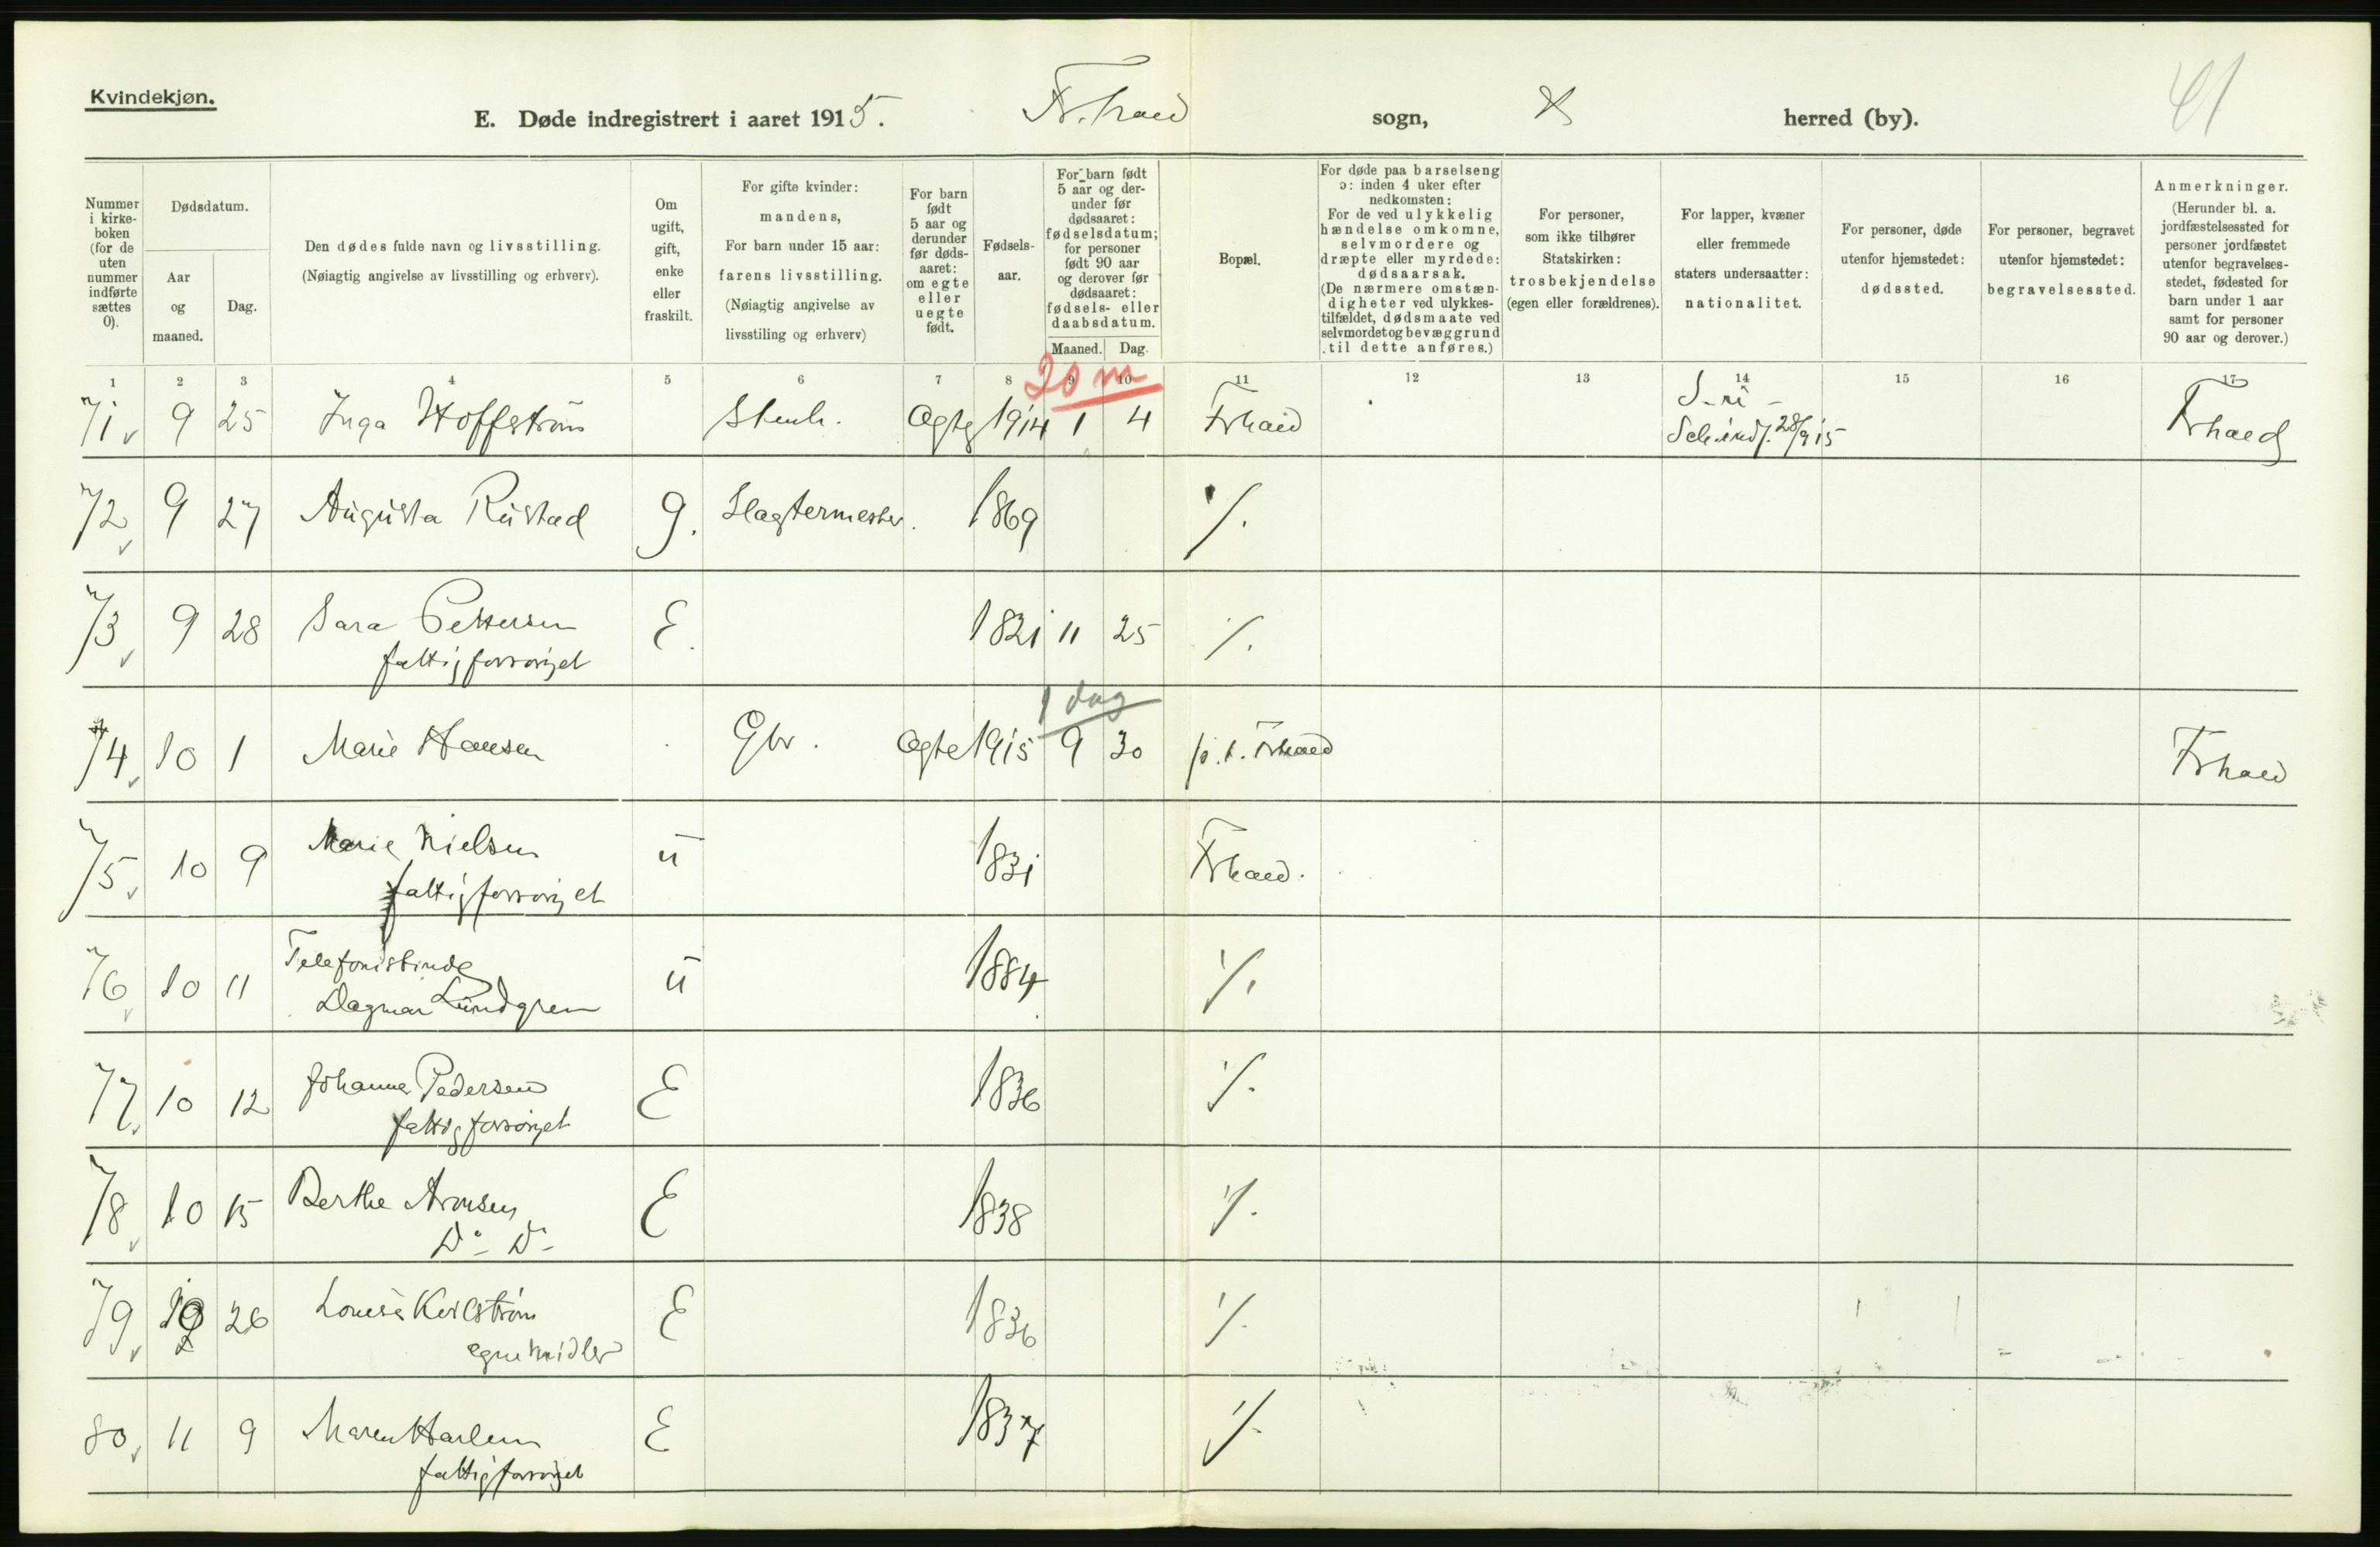 Kvindekjøn.
E. Døde indregistrert i aaret 1915. Fr.hald sogn, herred (by).
41
Nummer i kirkeboken (for de uten nummer indførte sættes 0).
Dødsdatum.
Aar og maaned.
Dag.
Den dødes fulde navn og livsstilling.
(Nøiagtig angivelse av livsstilling og erhverv).
Om ugift, gift, enke eller fraskilt.
For gifte kvinder:
mandens,
For barn under 15 aar:
farens livsstilling.
(Nøiagtig angivelse av
livsstiling og erhverv)
For barn født 5 aar og derunder før dødsaaret: om egte eller uegte født.
Fødselsaar.
For barn født 5 aar og derunder før dødsaaret: fødselsdatum; for personer født 90 aar og derover før dødsaaret: fødsels- eller daabsdatum.
Maaned. Dag.
Bopæl.
For døde paa barselseng ɔ: inden 4 uker efter nedkomsten:
For de ved ulykkelig hændelse omkomne, selvmordere og dræpte eller myrdede: dødsaarsak.
(De nærmere omstændigheter ved ulykkestilfældet, dødsmaate ved selvmordet og bevæggrund til dette anføres.)
For personer, som ikke tilhører Statskirken: trosbekjendelse (egen eller forældrenes).
For lapper, kvæner eller fremmede staters undersaatter: nationalitet.
For personer, døde utenfor hjemstedet: dødssted.
For personer, begravet utenfor hjemstedet: begravelsessted.
Anmerkninger.
(Herunder bl. a. jordfæstelsessted for personer jordfæstet utenfor begravelsesstedet, fødested for barn under 1 aar samt for personer 90 aar og derover.)
1 2 3 4 5 6 7 8 9 10 11 12 13 14 15 16 17
20 m
71 9 25 Inga Hoffstrøm Stenh. Ægte 1914 1 4 Frhald 28/9 15 Frhald
72 9 27 Augusta Rustad g. Slagtermester. 1869 %.
73 9 28 Sara Pettersen E. 1821 11 25 %.
fattigforsørget
1 dag
74 10 1 Marie Hansen Gbr. Ægte 1915 9 30 p.t. Frhald Frhald
75 10 9 Marie Nielsen u 1831 Frhald.
fattigforsørget
76 10 11 Telefonistinde u 1884 %.
Dagmar Lundgren
77 10 12 Johanne Pedersen E 1836 %.
fattigforsørget
78 10 15 Berthe Aronsen E 1838 %.
Do - Do -
79 26 Louise Kvilstrøm E 1836 %.
egne midler
80 11 9 Maren Harlem E 1837 %.
fattigforsørget